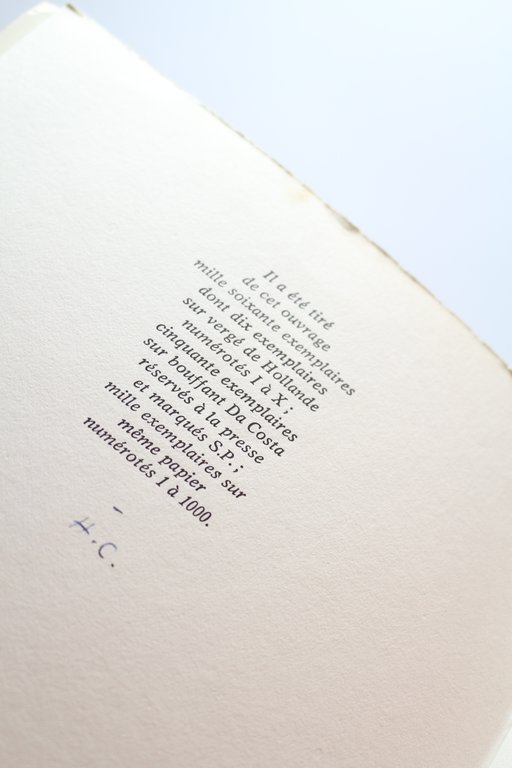 Il a été tiré
de cet ouvrage
mille soixante exemplaires
dont dix exemplaires
sur vergé de Hollande
numérotés I à X ;
cinquante exemplaires
sur bouffant Da Costa
réservés à la presse
et marqués S.P. ;
mille exemplaires sur
même papier
numérotés 1 à 1000.
-
H.C.